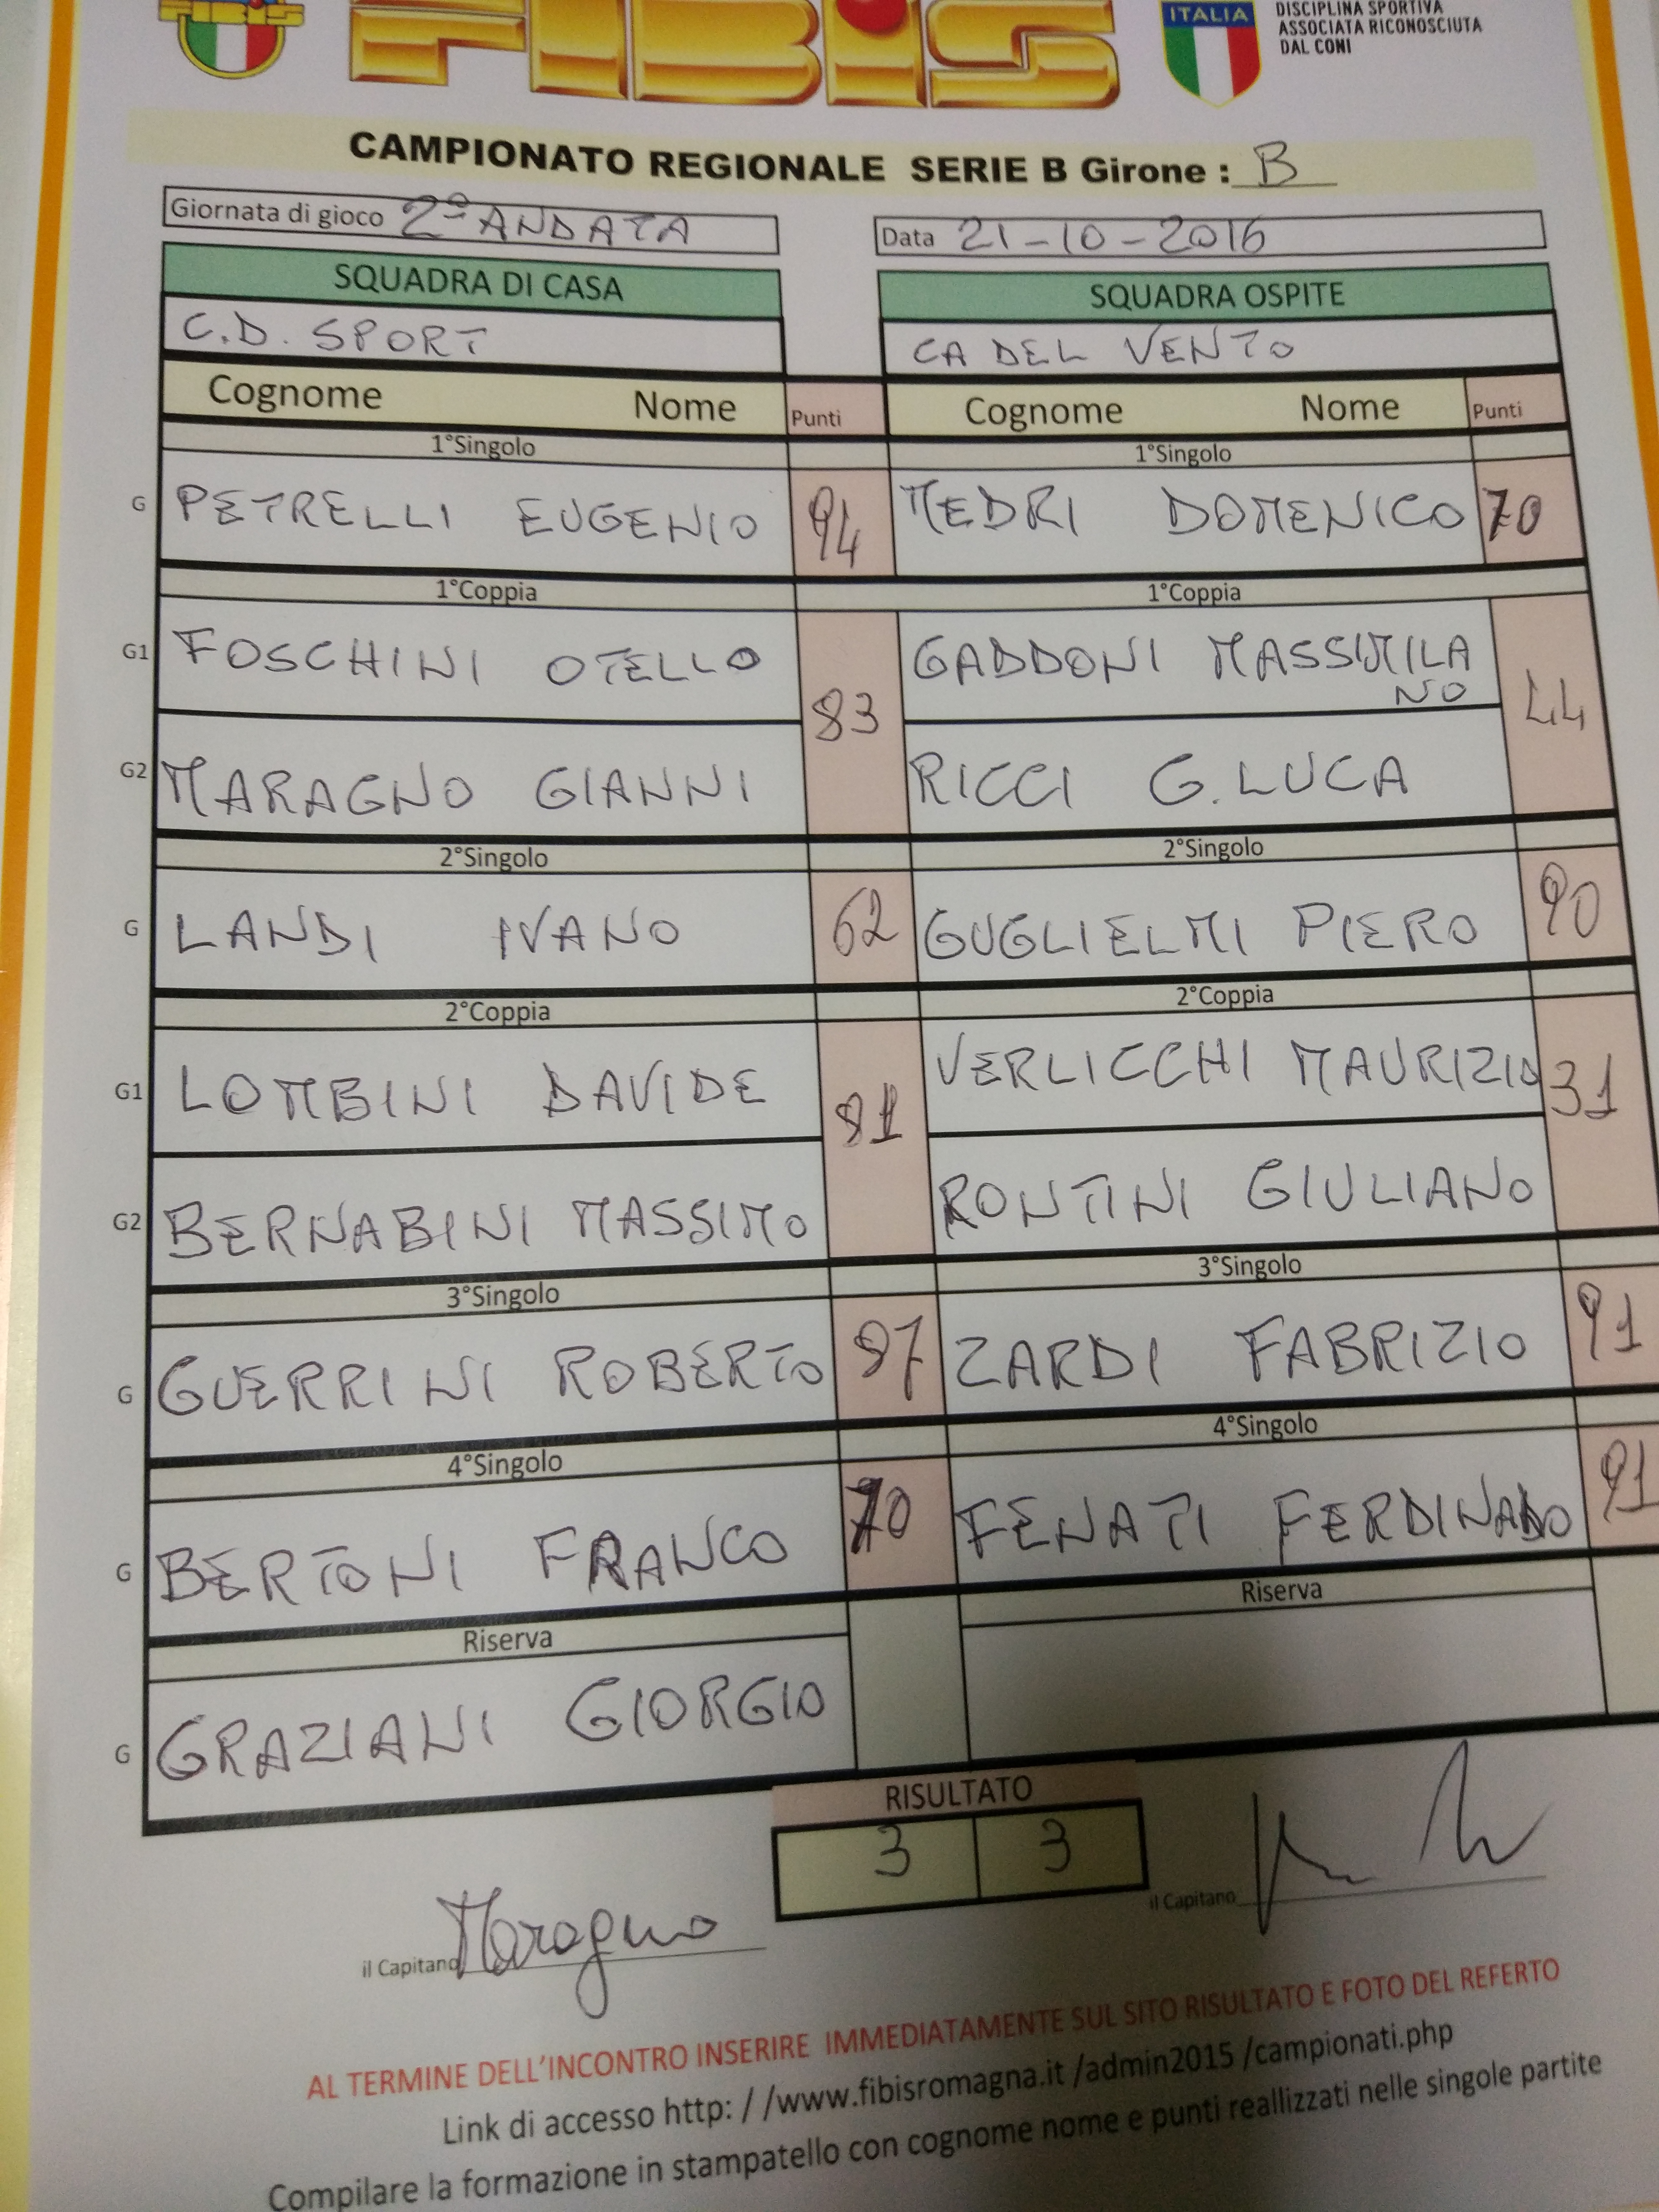 FIBIS
FIBIS
ITALIA
DISCIPLINA SPORTIVA
ASSOCIATA RICONOSCIUTA
DAL CONI
CAMPIONATO REGIONALE SERIE B Girone : B
Giornata di gioco 2ª ANDATA Data 21-10-2016
SQUADRA DI CASA SQUADRA OSPITE
C.D. SPORT CA DEL VENTO
Cognome Nome Punti Cognome Nome Punti
1°Singolo 1°Singolo
G PETRELLI EUGENIO 94 MEDRI DOMENICO 70
1°Coppia 1°Coppia
G1 FOSCHINI OTELLO 83 GADDONI MASSIMILA
NO 44
G2 MARAGNO GIANNI RICCI G.LUCA
2°Singolo 2°Singolo
G LANDI IVANO 62 GUGLIELMI PIERO 90
2°Coppia 2°Coppia
G1 LOMBINI DAVIDE 81 VERLICCHI MAURIZIO 31
G2 BERNABINI MASSIMO RONTINI GIULIANO
3°Singolo 3°Singolo
G GUERRINI ROBERTO 87 ZARDI FABRIZIO 91
4°Singolo 4°Singolo
G BERTONI FRANCO 70 FENATI FERDINADO 91
Riserva Riserva
G GRAZIANI GIORGIO
RISULTATO
3 3
il Capitano Maragno il Capitano
AL TERMINE DELL'INCONTRO INSERIRE IMMEDIATAMENTE SUL SITO RISULTATO E FOTO DEL REFERTO
Link di accesso http: / /www.fibisromagna.it /admin2015 /campionati.php
Compilare la formazione in stampatello con cognome nome e punti reallizzati nelle singole partite